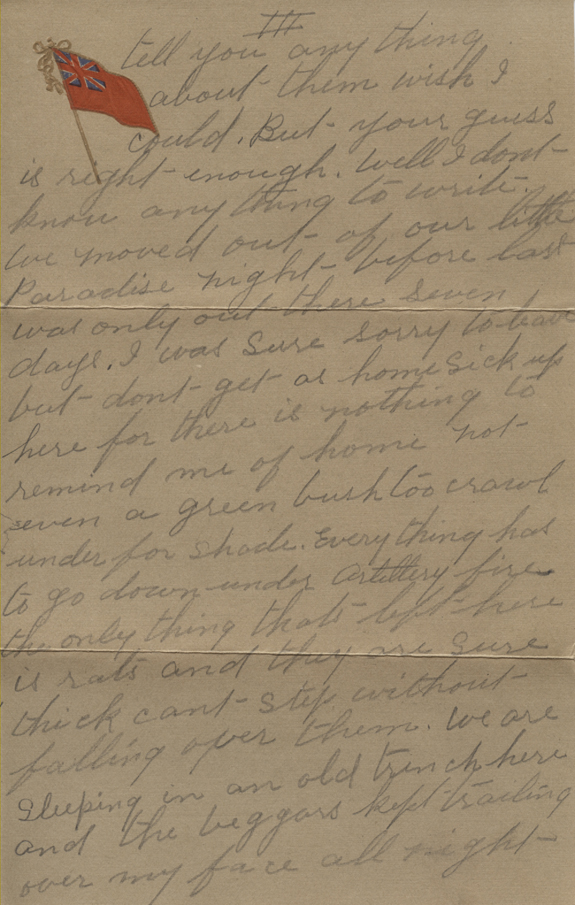 III
tell you any thing
about them wish I
could. But your guess
is right enough. Well I dont
know any thing to write.
we moved out of our little
Paradise night before last
was only out there seven
days. I was sure sorry to leave
but dont get as home sick up
here for there is nothing to
remind me of home not
even a green bush too crawl
under for shade. Every thing has
to go down under Artillery fire
the only thing thats left here
is rats and they are sure
thick cant step without
falling over them. We are
sleeping in an old trench here
and the beggars kept trailing
over my face all night